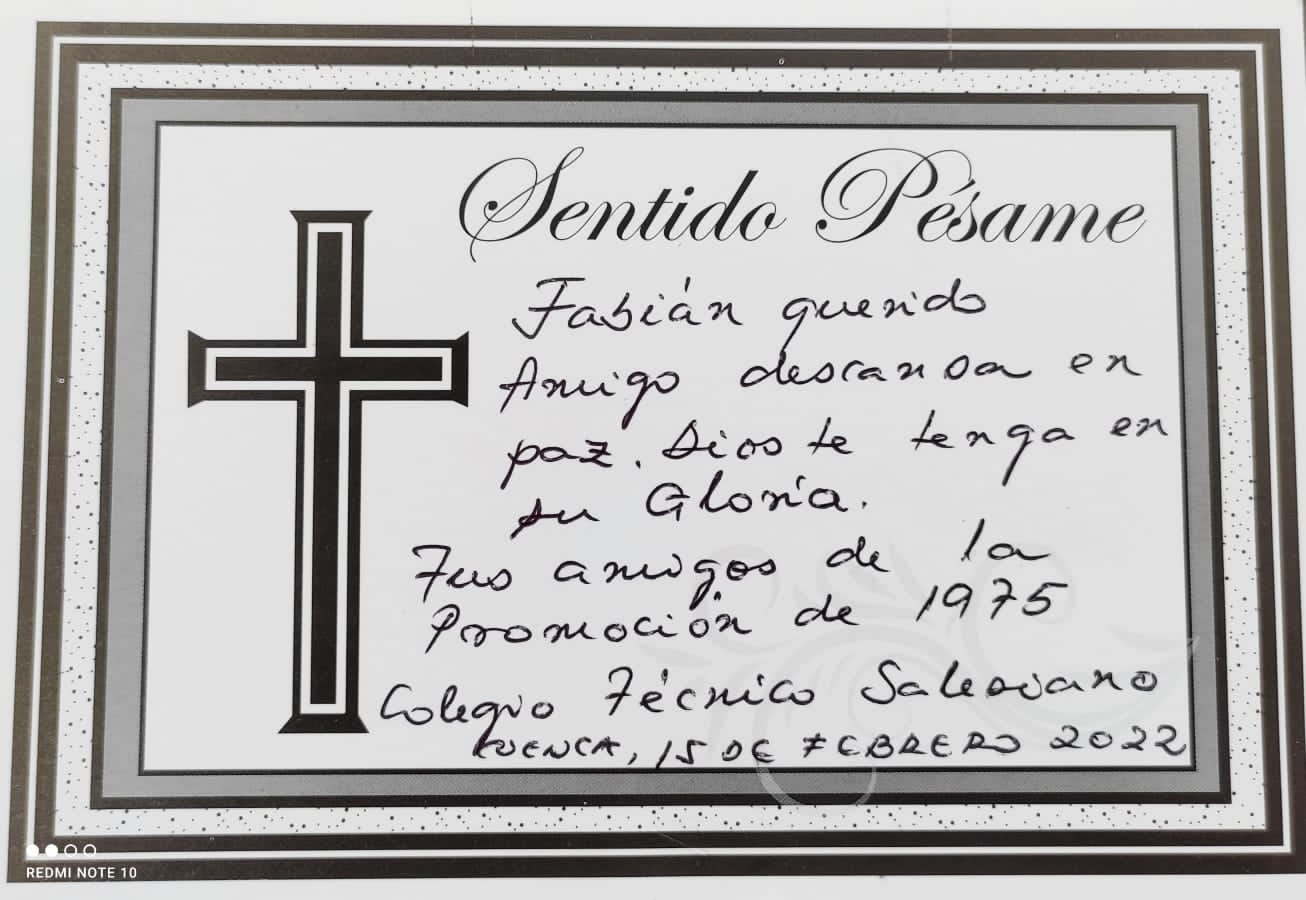 Sentido Pésame
Fabián querido
Amigo descansa en
paz. Dios te tenga en
su Gloria.
Tus amigos de la
Promoción de 1975
Colegio Técnico Salesiano
CUENCA, 15 DE FEBRERO 2022
REDMI NOTE 10